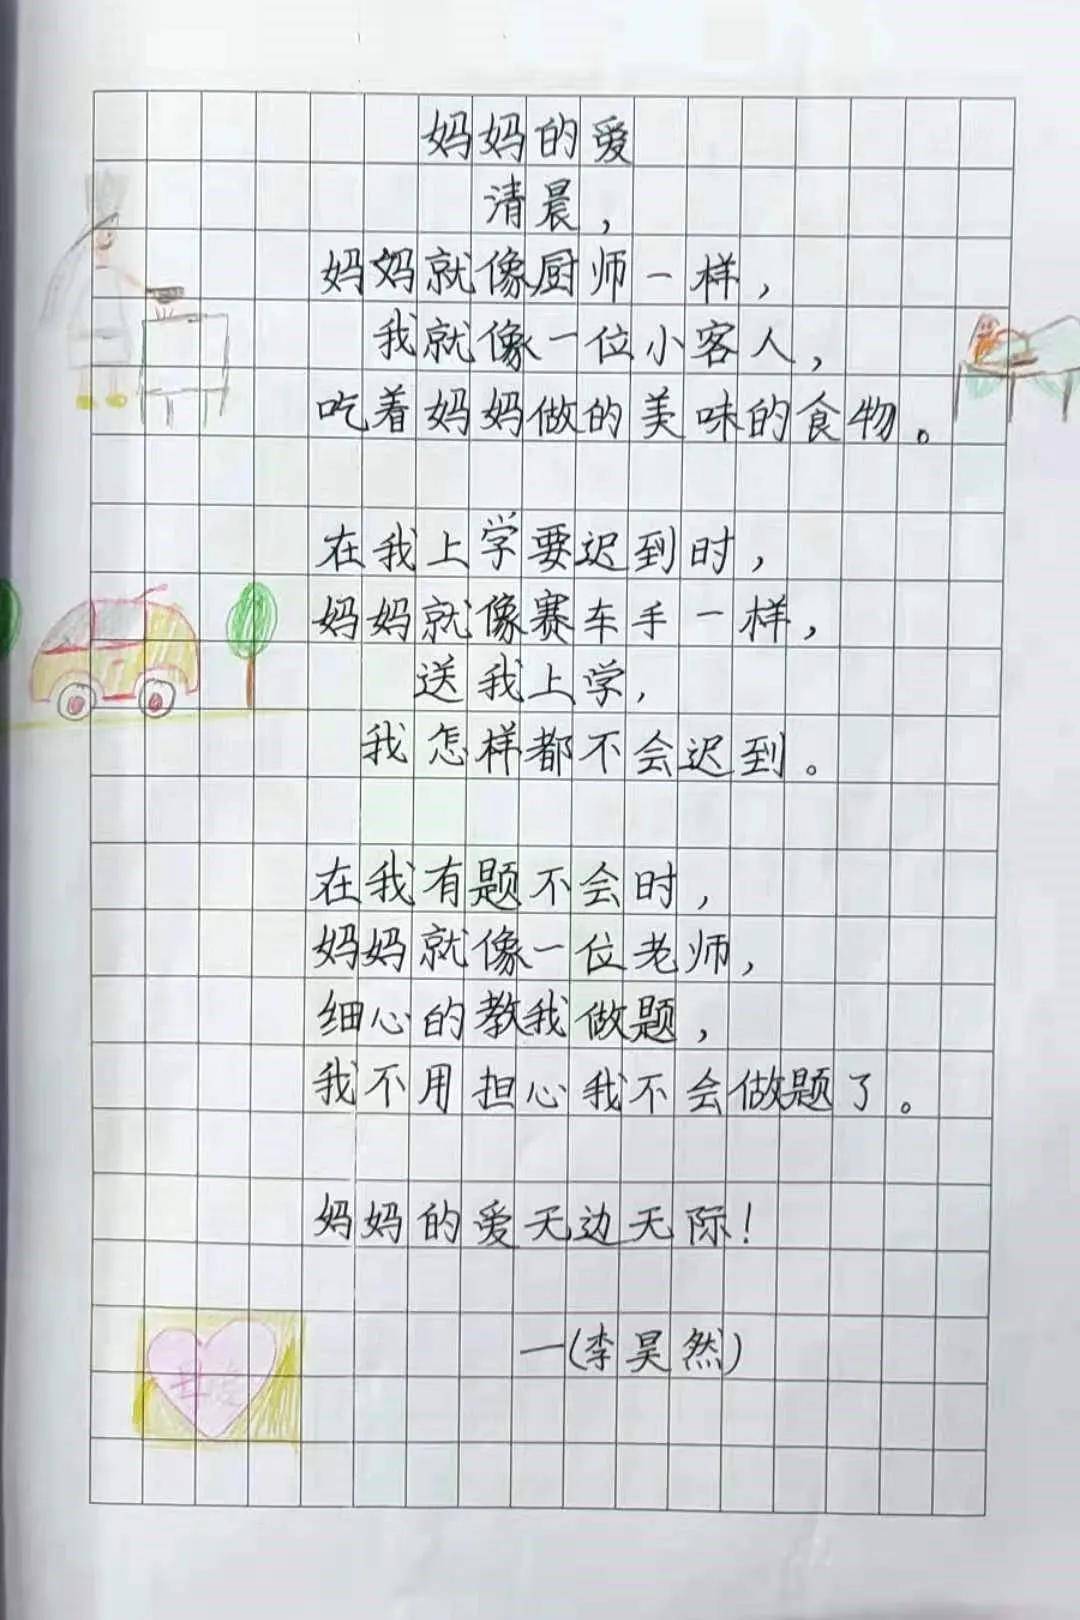 妈妈的爱
清晨，
妈妈就像厨师一样，
我就像一位小客人，
吃着妈妈做的美味的食物。
在我上学要迟到时，
妈妈就像赛车手一样，
送我上学，
我怎样都不会迟到。
在我有题不会时，
妈妈就像一位老师，
细心的教我做题，
我不用担心我不会做题了。
妈妈的爱无边无际！
—(李昊然)
母爱